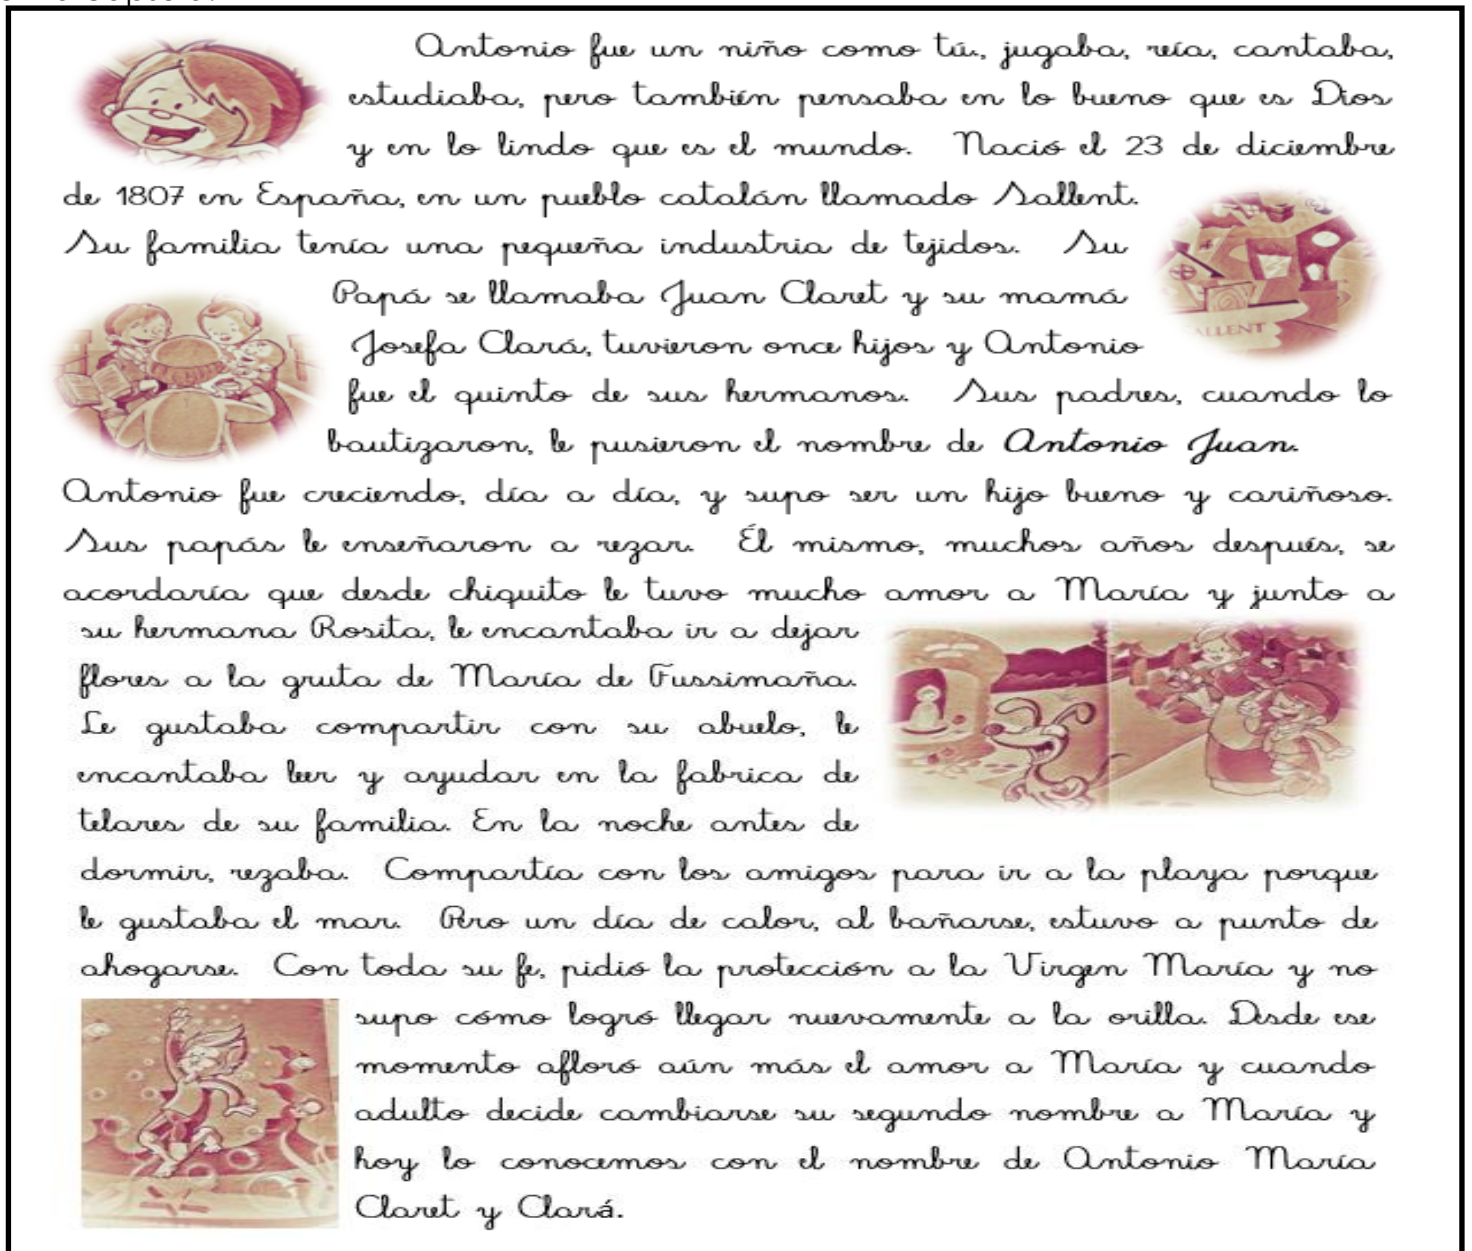 Antonio fue un niño como tú., jugaba, reía, cantaba,
estudiaba, pero también pensaba en lo bueno que es Dios
y en lo lindo que es el mundo. Nació el 23 de diciembre
de 1807 en España, en un pueblo catalán llamado Sallent.
Su familia tenía una pequeña industria de tejidos. Su
Papá se llamaba Juan Claret y su mamá
Josefa Clará, tuvieron once hijos y Antonio
fue el quinto de sus hermanos. Sus padres, cuando lo
bautizaron, le pusieron el nombre de Antonio Juan.
Antonio fue creciendo, día a día, y supo ser un hijo bueno y cariñoso.
Sus papás le enseñaron a rezar. Él mismo, muchos años después, se
acordaría que desde chiquito le tuvo mucho amor a María y junto a
su hermana Rosita, le encantaba ir a dejar
flores a la gruta de María de Fussimaña.
Le gustaba compartir con su abuelo, le
encantaba leer y ayudar en la fabrica de
telares de su familia. En la noche antes de
dormir, rezaba. Compartía con los amigos para ir a la playa porque
le gustaba el mar. Pero un día de calor, al bañarse, estuvo a punto de
ahogarse. Con toda su fe, pidió la protección a la Virgen María y no
supo cómo logró llegar nuevamente a la orilla. Desde ese
momento afloró aún más el amor a María y cuando
adulto decide cambiarse su segundo nombre a María y
hoy lo conocemos con el nombre de Antonio María
Claret y Clará.